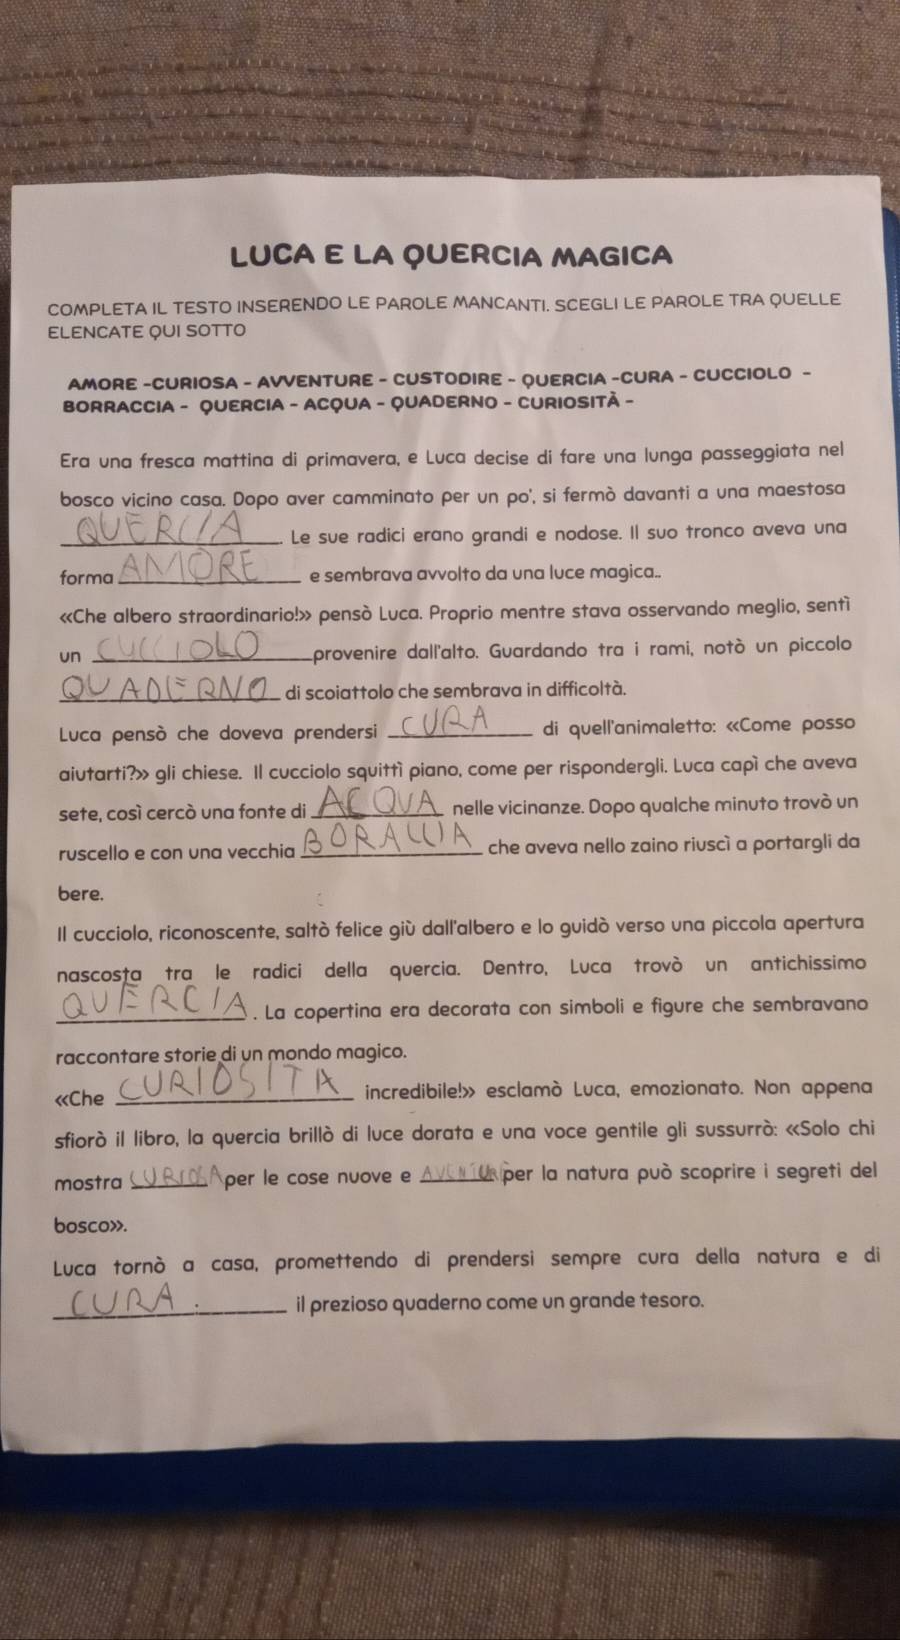 LUCA E LA QUERCIA MAGICA
COMPLETA IL TESTO INSERENDO LE PAROLE MANCANTI. SCEGLI LE PAROLE TRA QUELLE
ELENCATE QUI SOTTO
AMORE -CURIOSA - AVVENTURE - CUSTODIRE - QUERCIA -CURA - CUCCIOLO -
BORRACCIA - QUERCIA - ACQUA - QUADERNO - CURIOSITÀ -
Era una fresca mattina di primavera, e Luca decise di fare una lunga passeggiata nel
bosco vicino casa. Dopo aver camminato per un po', si fermò davanti a una maestosa
QUERCIA. Le sue radici erano grandi e nodose. Il suo tronco aveva una
forma AMORE e sembrava avvolto da una luce magica..
«Che albero straordinario!» pensò Luca. Proprio mentre stava osservando meglio, sentì
un CUCCIOLO provenire dall'alto. Guardando tra i rami, notò un piccolo
QUADERNO di scoiattolo che sembrava in difficoltà.
Luca pensò che doveva prendersi CURA di quell'animaletto: «Come posso
aiutarti?» gli chiese. Il cucciolo squittì piano, come per rispondergli. Luca capì che aveva
sete, così cercò una fonte di ACQUA nelle vicinanze. Dopo qualche minuto trovò un
ruscello e con una vecchia BORACCIA che aveva nello zaino riuscì a portargli da
bere.
Il cucciolo, riconoscente, saltò felice giù dall'albero e lo guidò verso una piccola apertura
nascosta tra le radici della quercia. Dentro, Luca trovò un antichissimo
QUERCIA. La copertina era decorata con simboli e figure che sembravano
raccontare storie di un mondo magico.
«Che CURIOSITA incredibile!» esclamò Luca, emozionato. Non appena
sfiorò il libro, la quercia brillò di luce dorata e una voce gentile gli sussurrò: «Solo chi
mostra CURIOSA per le cose nuove e per la natura può scoprire i segreti del
bosco».
Luca tornò a casa, promettendo di prendersi sempre cura della natura e di
CURA il prezioso quaderno come un grande tesoro.